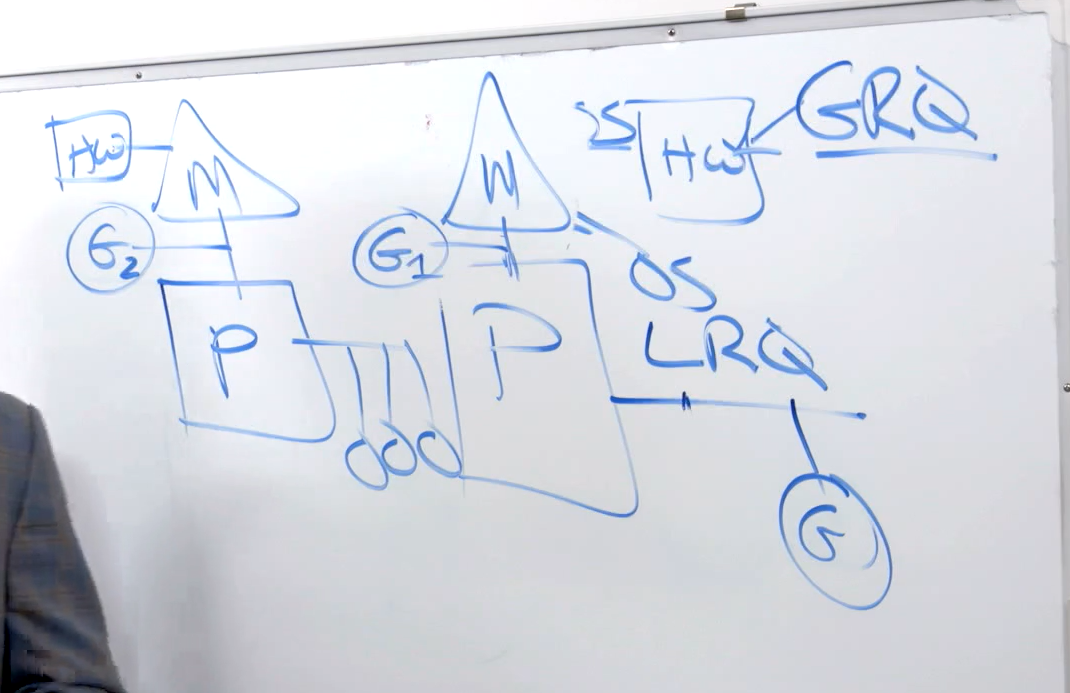 HW
M
G2
P
M
G1
P
HW
GRQ
OS
LRQ
G